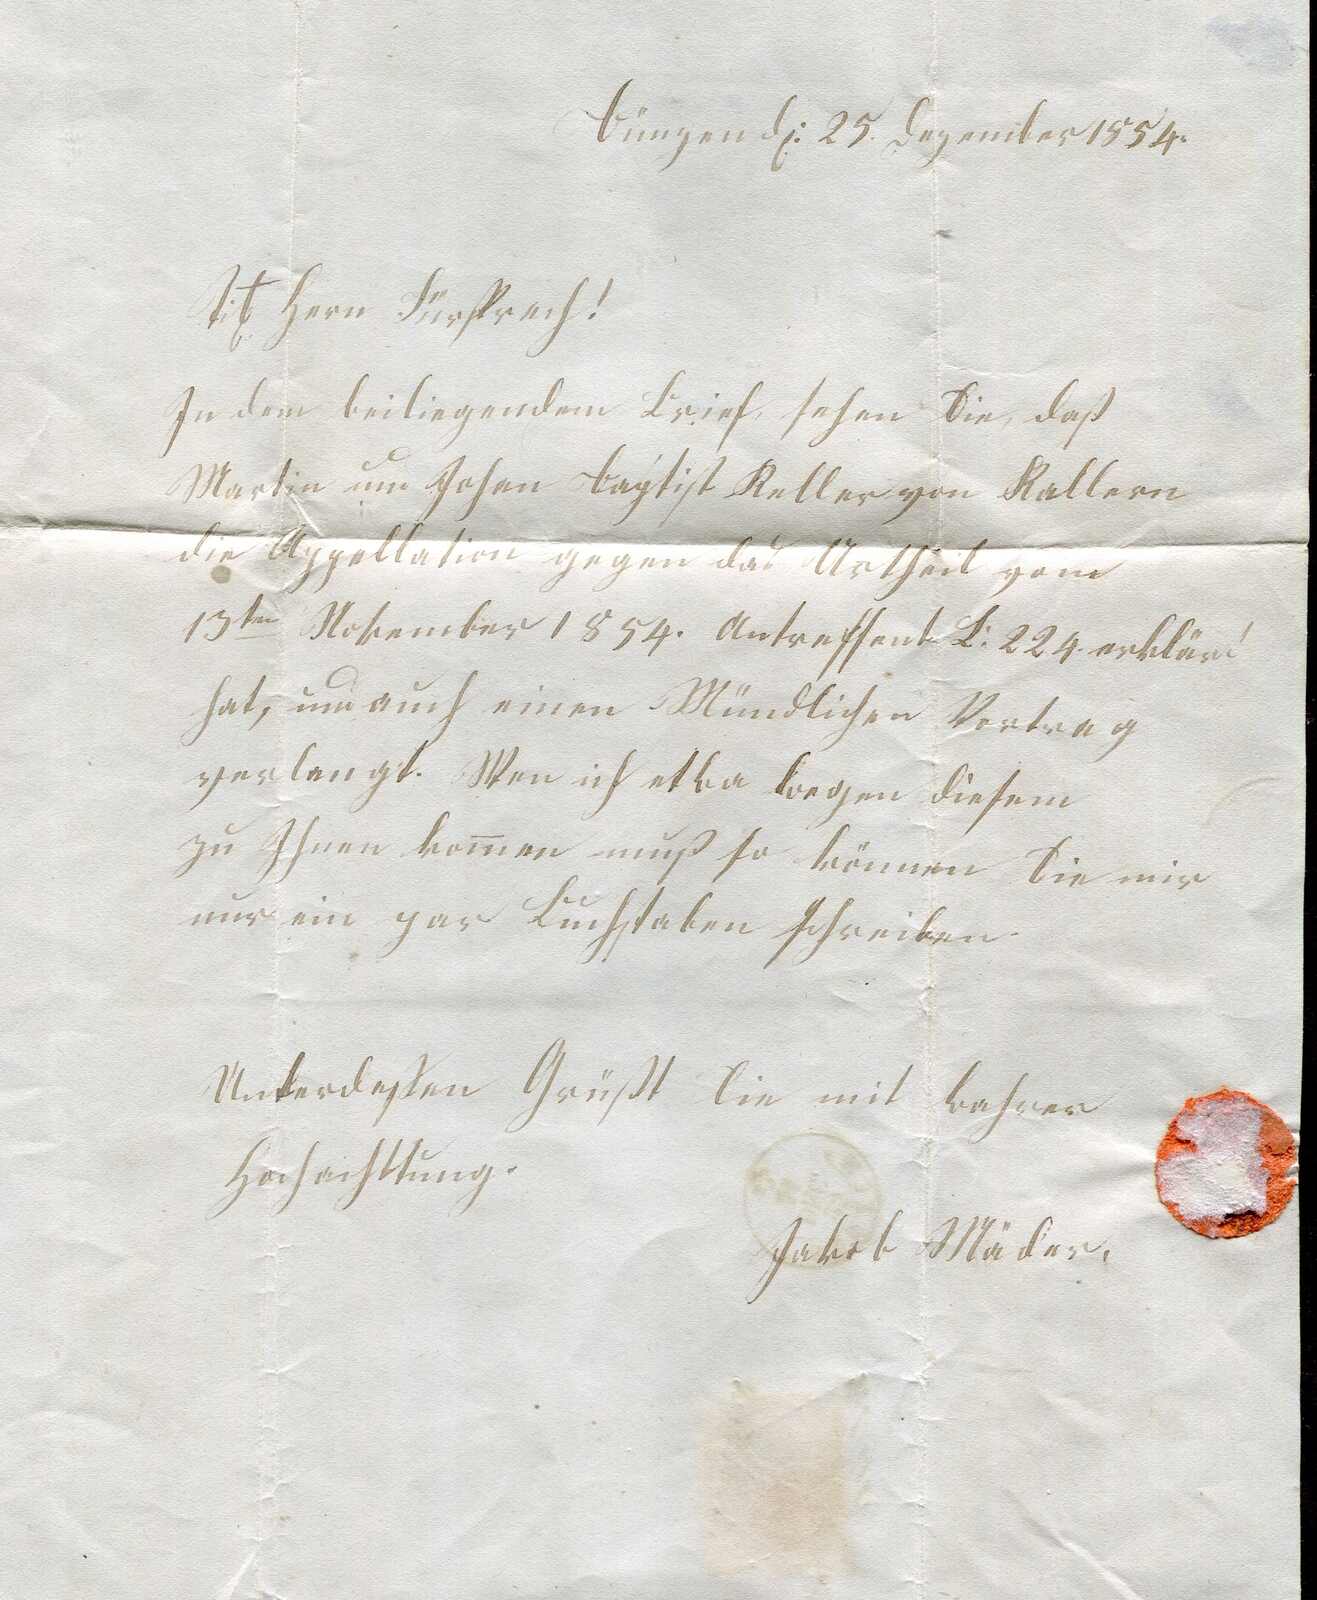 Büngen d: 25. Dezember 1854.
Tit Herrn Fürsprech!
In dem beiliegendem Brief, sehen Sie, daß
Martin und Johan Baptist Keller von Kallern
die Appellation gegen das Urtheil vom
13ten November 1854. Antreffent L: 224. erklärt
hat, und auch einen Mündlichen Vortrag
verlangt. Wen ich etwa wegen diesem
zu Ihnen kommen muß so können Sie mir
nur ein par Buchstaben schreiben.
Unterdessen Grüßt Sie mit wahrer
Hochachttung.
Jakob Mäder.